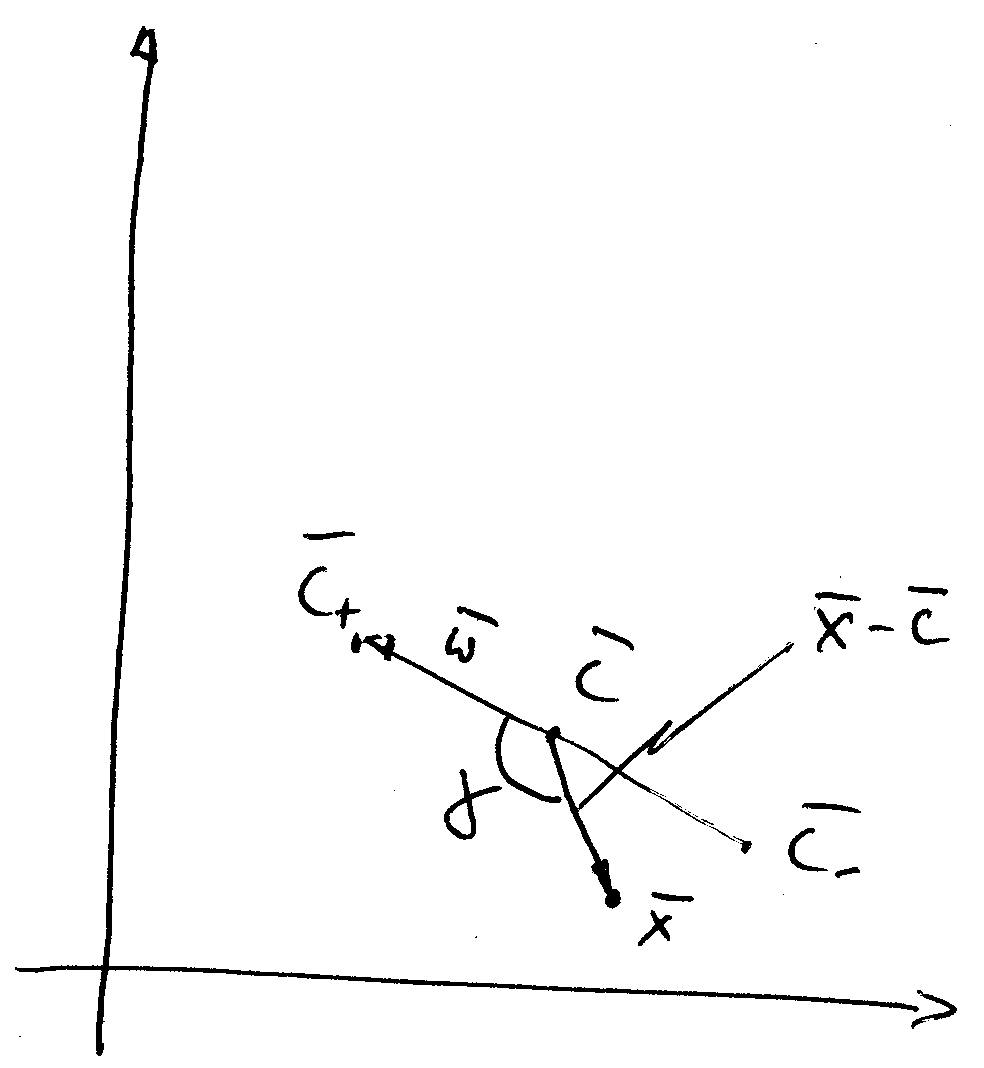 C̅₊
w̅
C̅
x̅ - c̅
γ
C̅₋
x̅